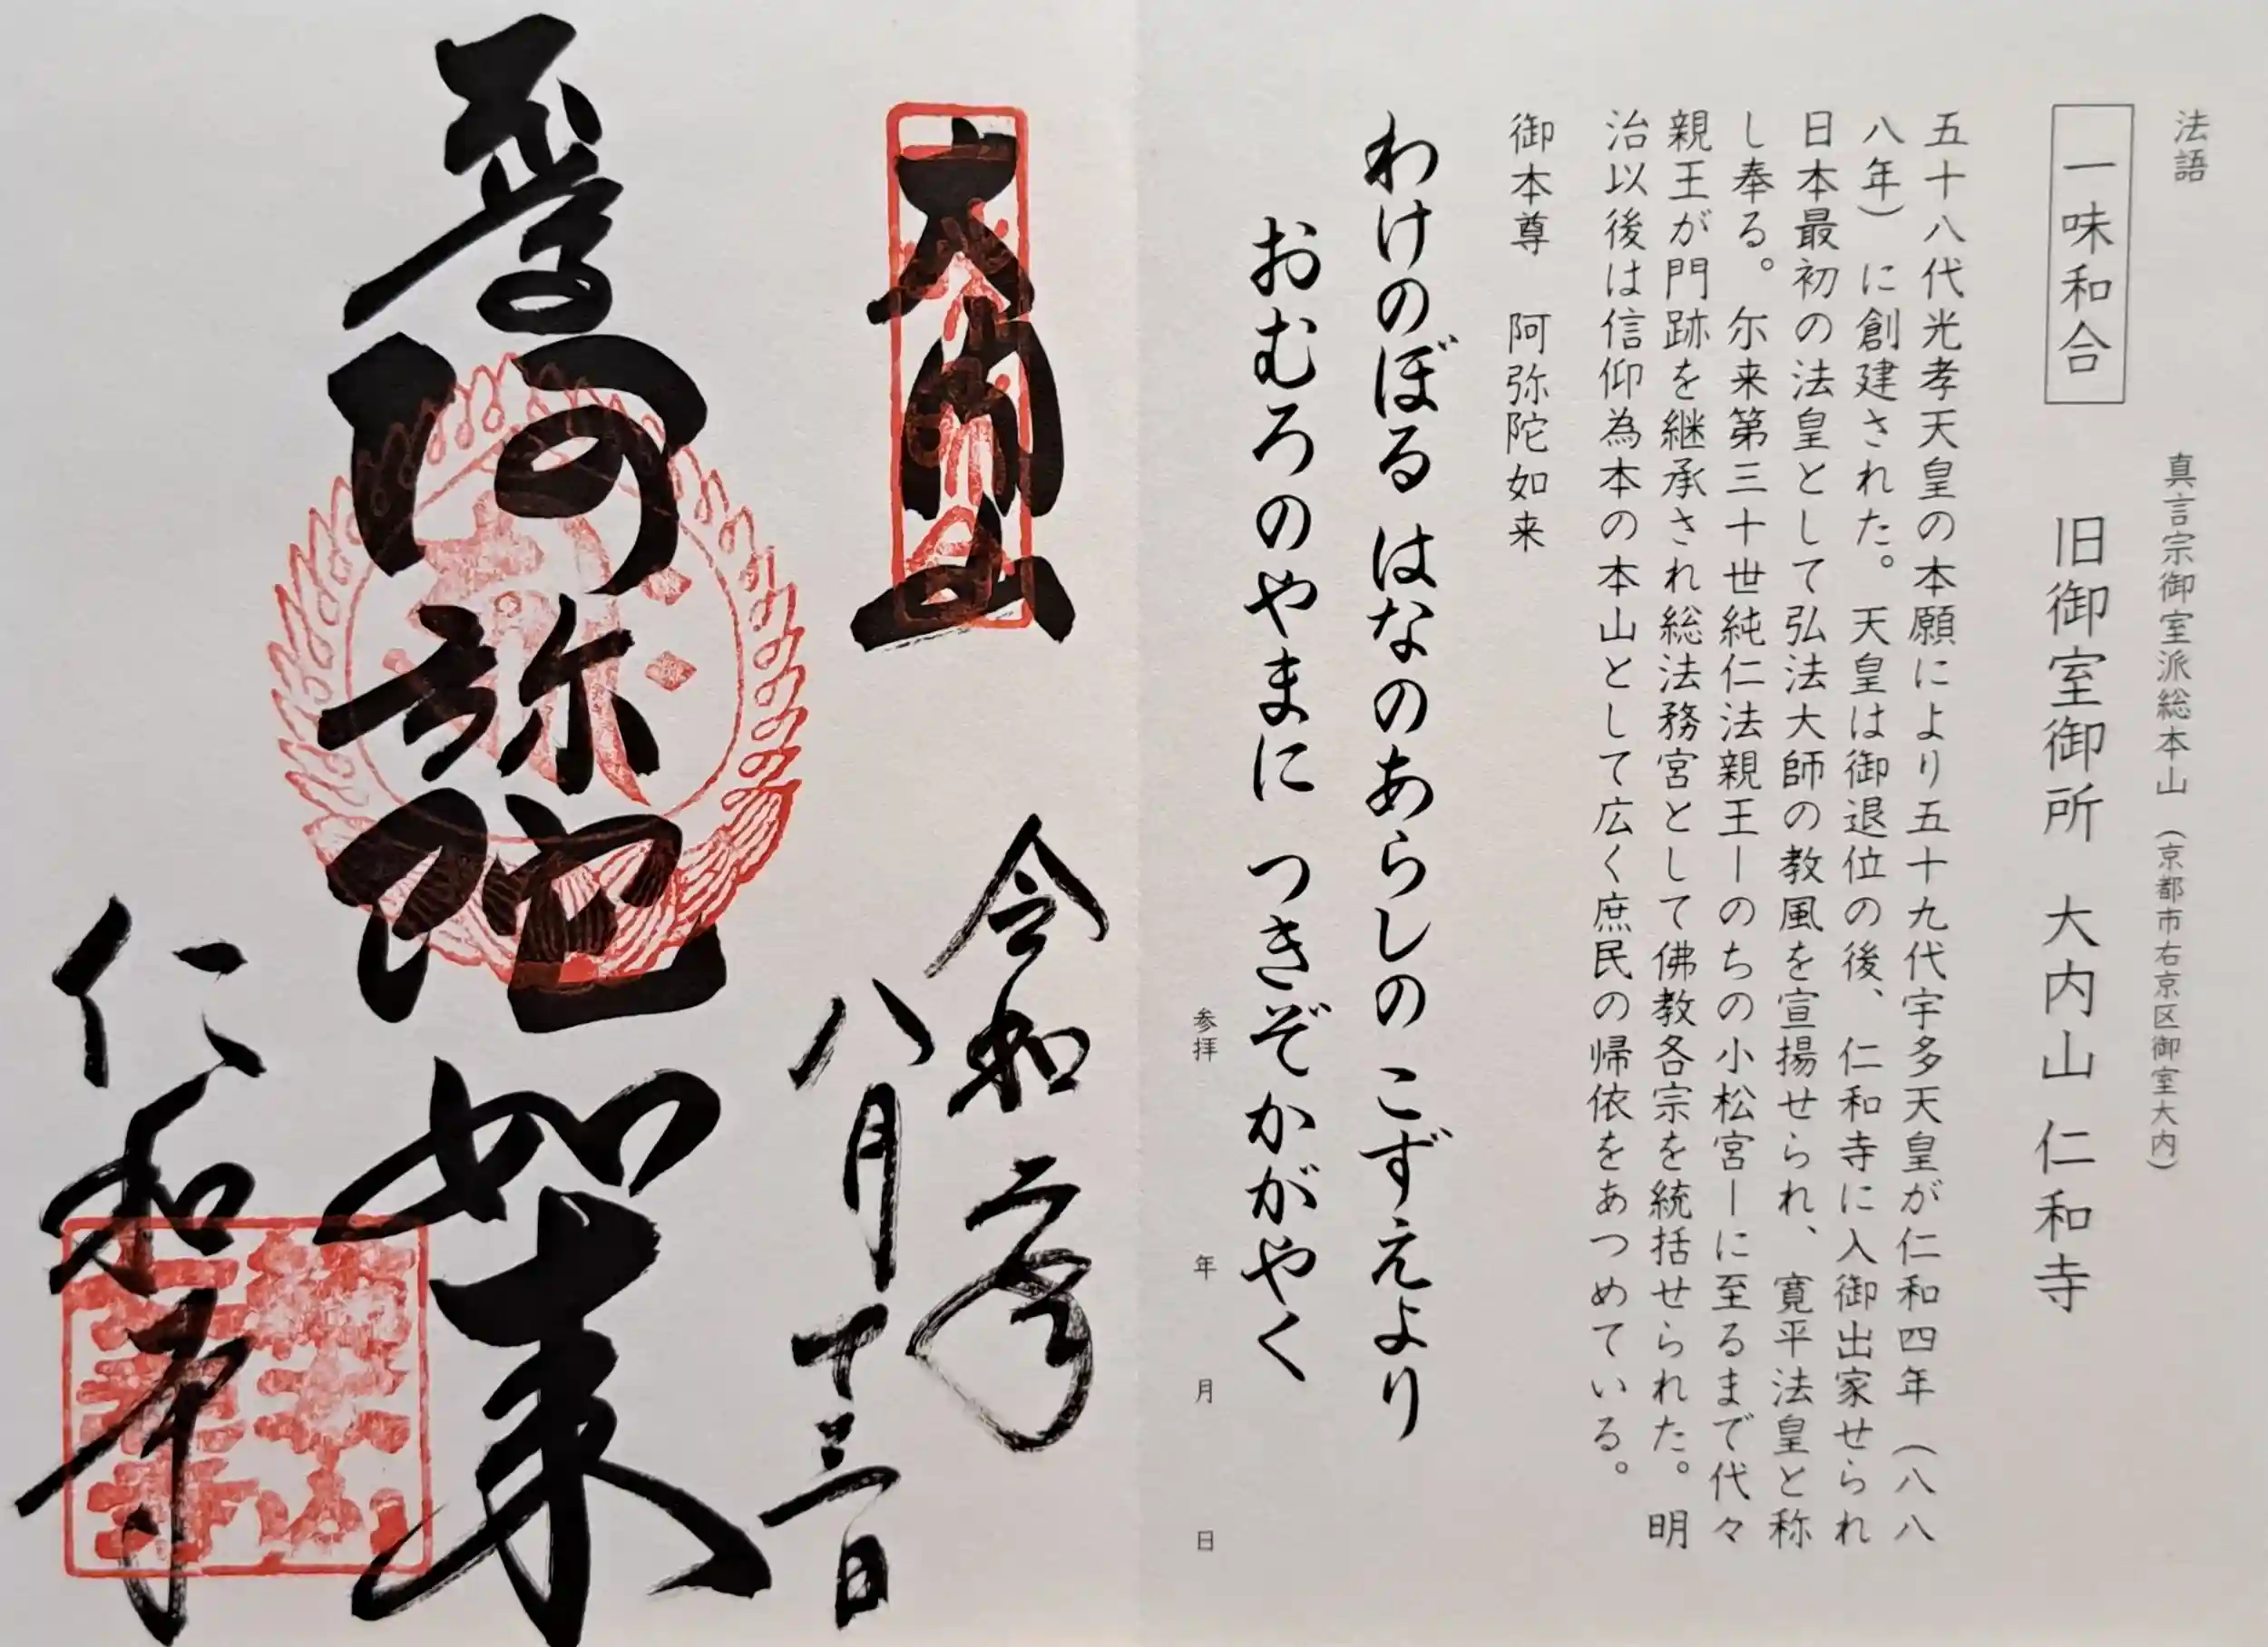 法語
真言宗御室派総本山（京都市右京区御室大内）
一味和合
旧御室御所 大内山 仁和寺
五十八代光孝天皇の本願により五十九代宇多天皇が仁和四年（八八
八年）に創建された。天皇は御退位の後、仁和寺に入御出家せられ
日本最初の法皇として弘法大師の教風を宣揚せられ、寛平法皇と称
し奉る。尓来第三十世純仁法親王ーのちの小松宮ーに至るまで代々
親王が門跡を継承され総法務宮として佛教各宗を統括せられた。明
治以後は信仰為本の本山として広く庶民の帰依をあつめている。
御本尊 阿弥陀如来
わけのぼる はなのあらしの こずえより
おむろのやまに つきぞかがやく
参拝 年 月 日
大内山
令和
八月十三日
阿弥陀如来
仁和寺